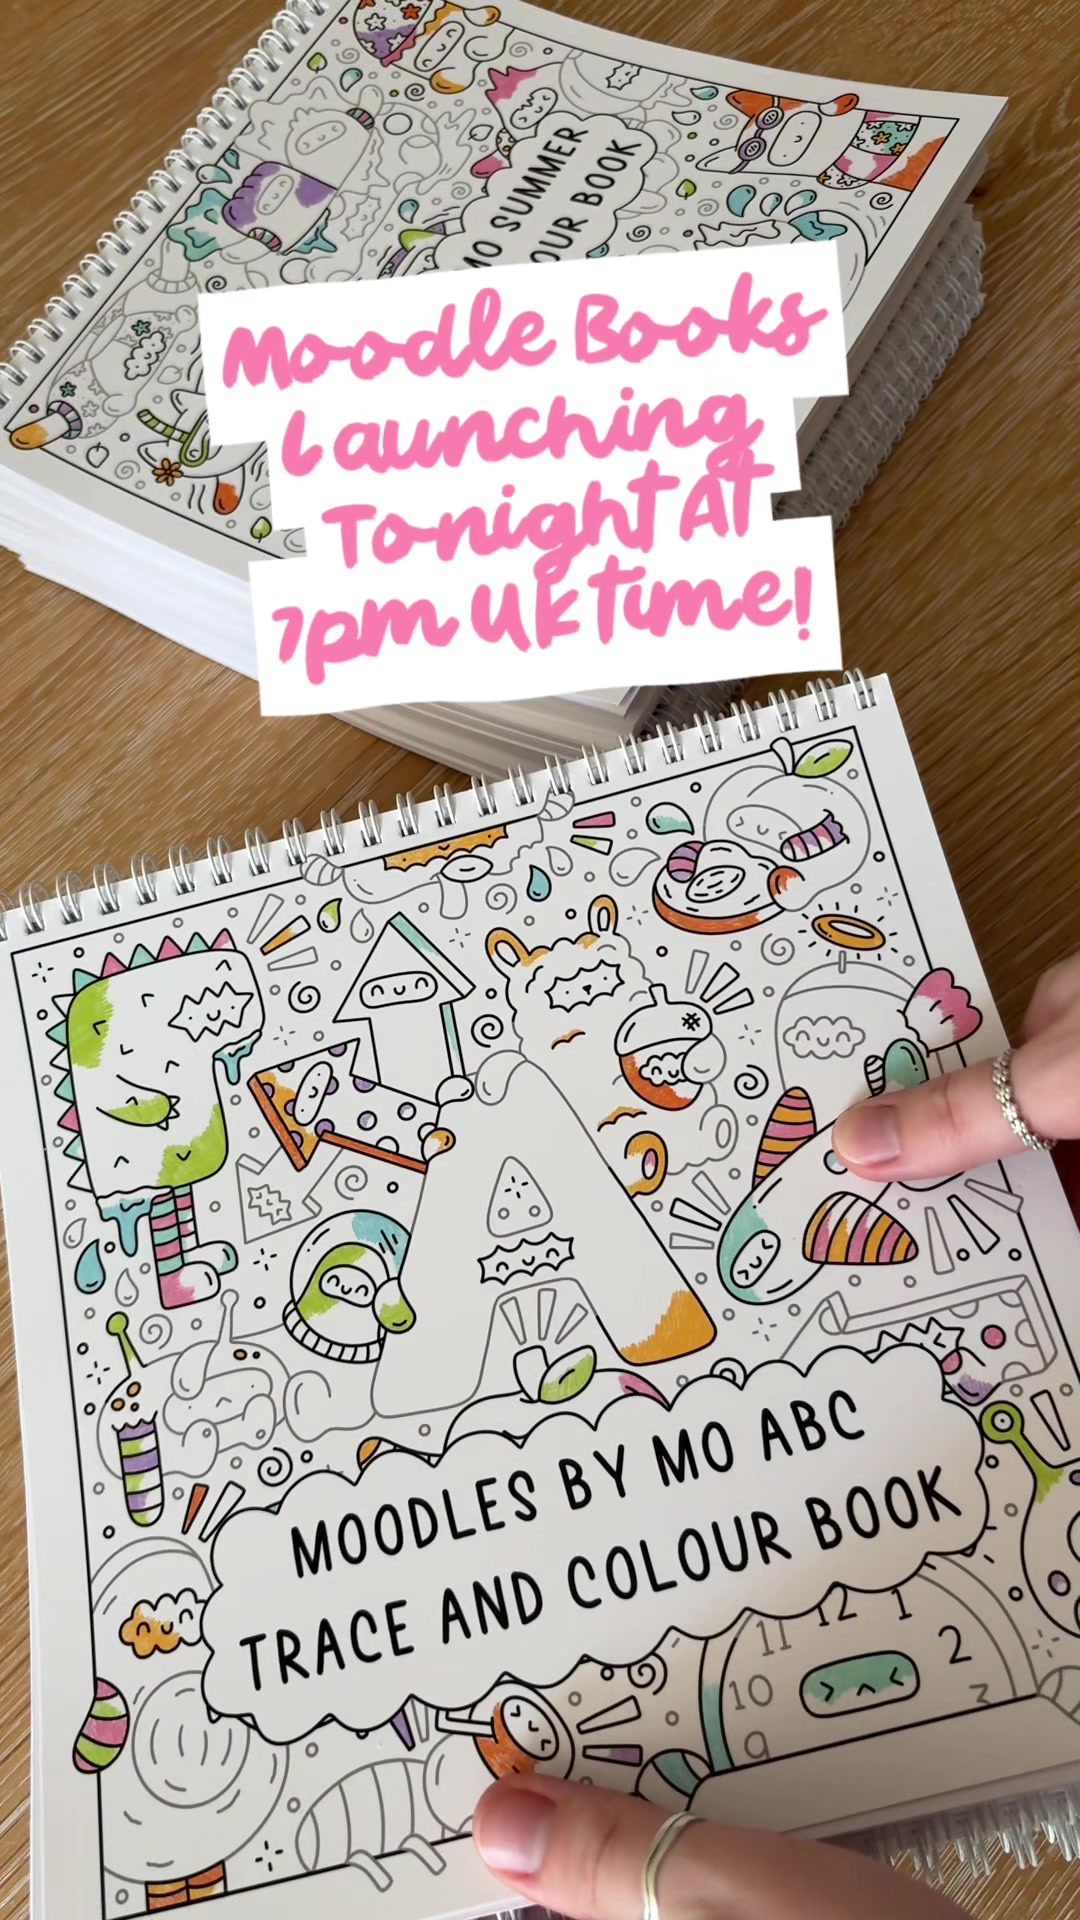 MO SUMMER
OUR BOOK
Moodle Books
Launching
Tonight At
7pm UK time!
MOODLES BY MO ABC
TRACE AND COLOUR BOOK
11 12 1
10 2
9 3